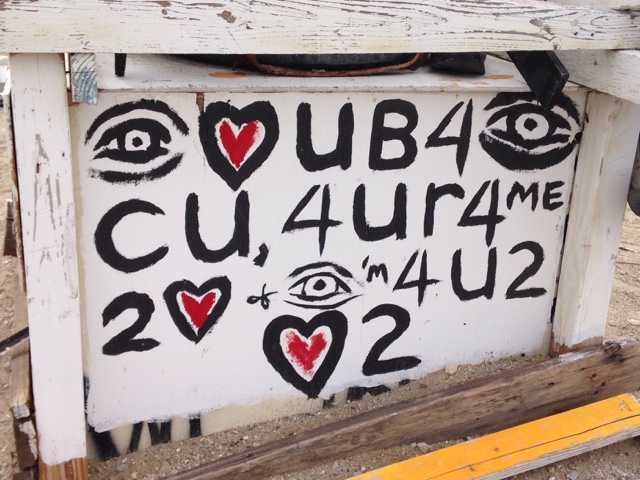 uB4
cu, 4ur4ME
2 & 'm4u2
2